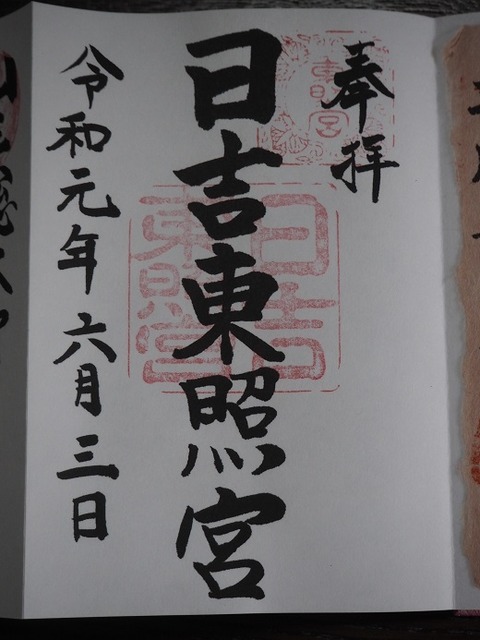 奉拝
東照宮
日吉東照宮
日吉
東照宮
令和元年六月三日